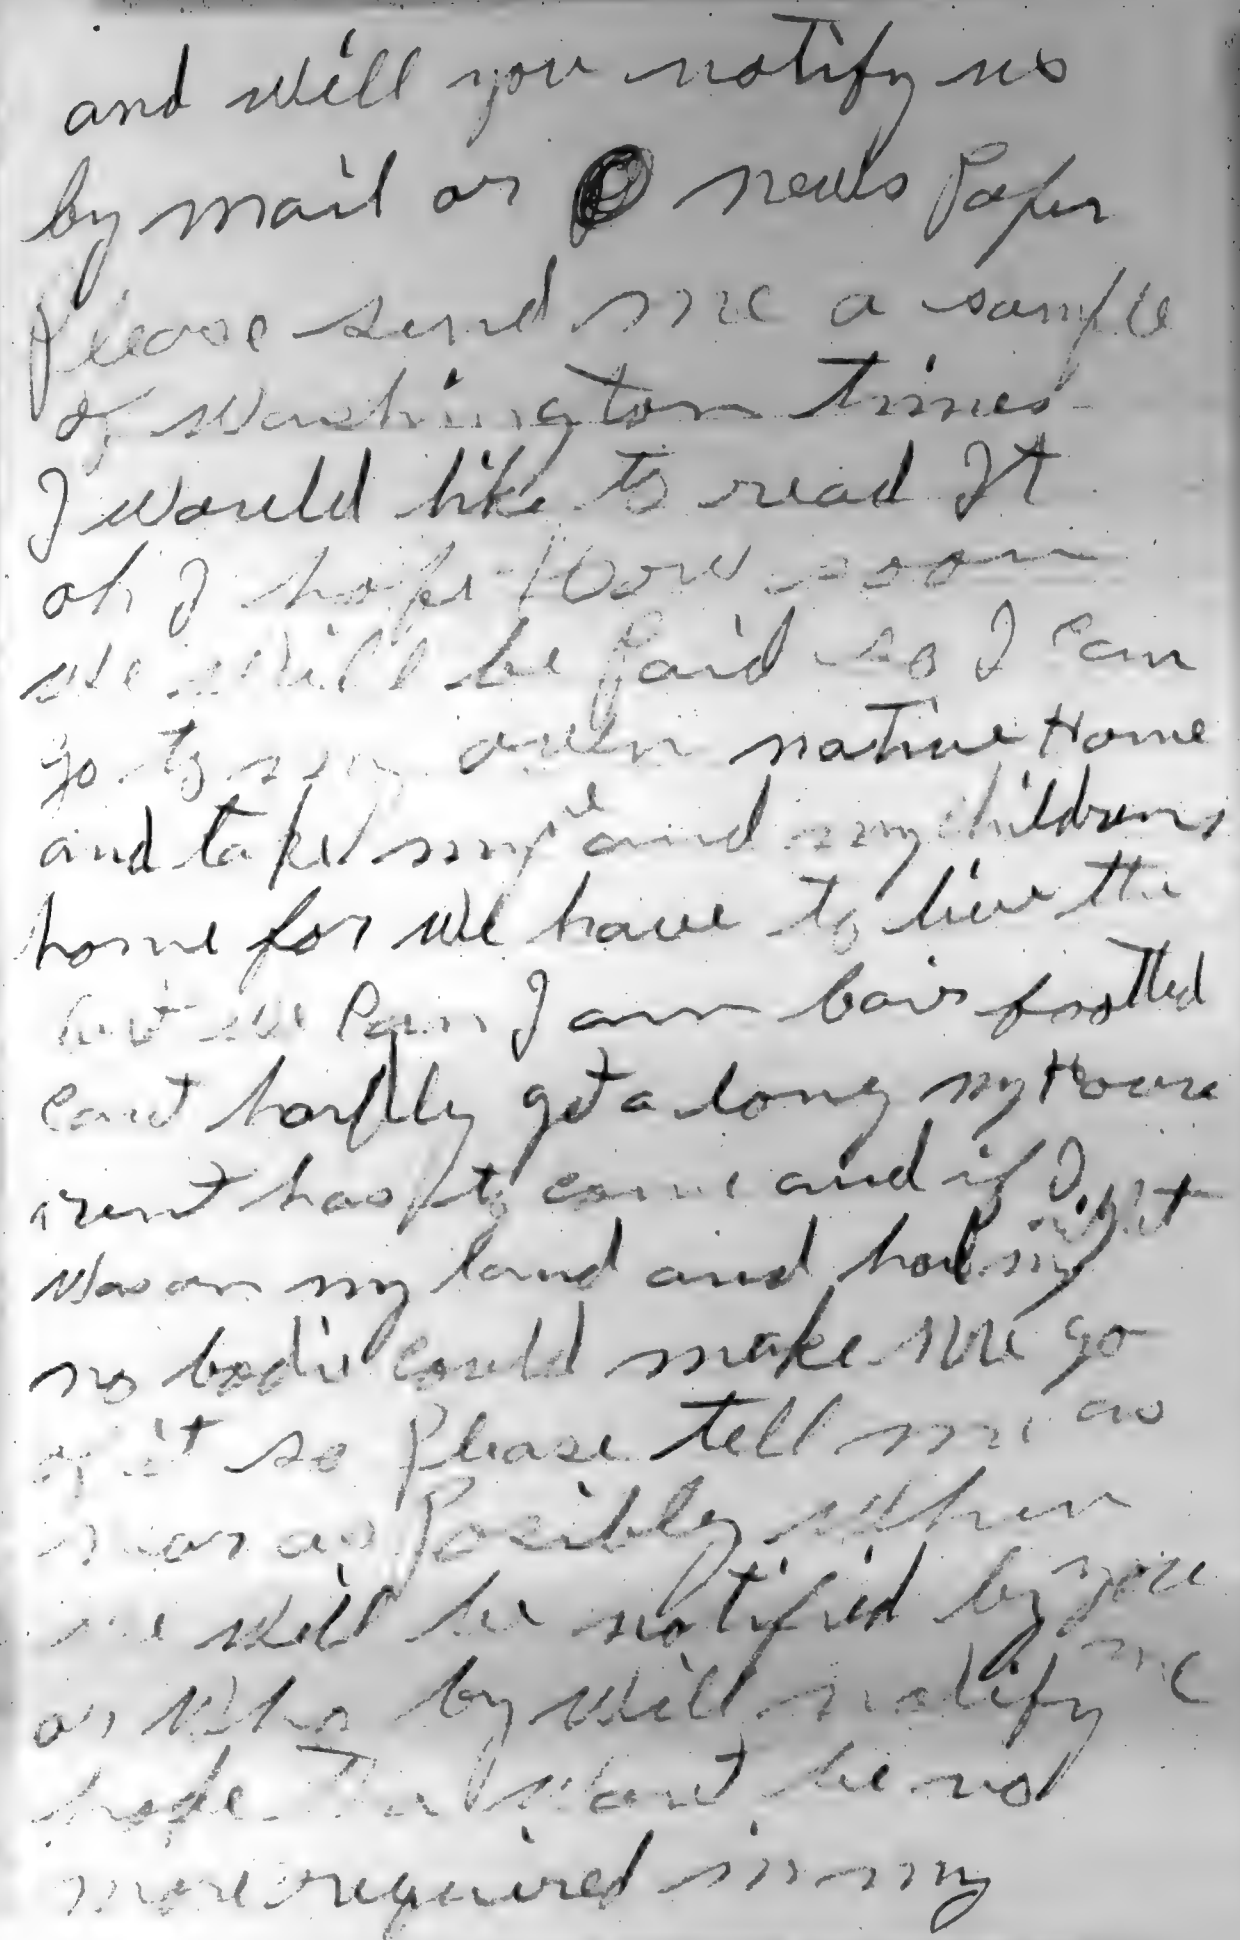 and will you notify us
by mail or news Paper
Please send me a sample
of Washington times
I would like to read It
oh I hope How soon
we will be Paid so I can
go to my own native Home
and take me and my childrens
home for we have to live the
best we Can I am bair footted
Cant hardly get a long my House
rent has to come and if I
was on my land and had my right
no bodie could make me go
of it so Please tell me as
soon as Posibley when
we will be notified by you
or who by will notify me
hope Ther wont be no
more required in my